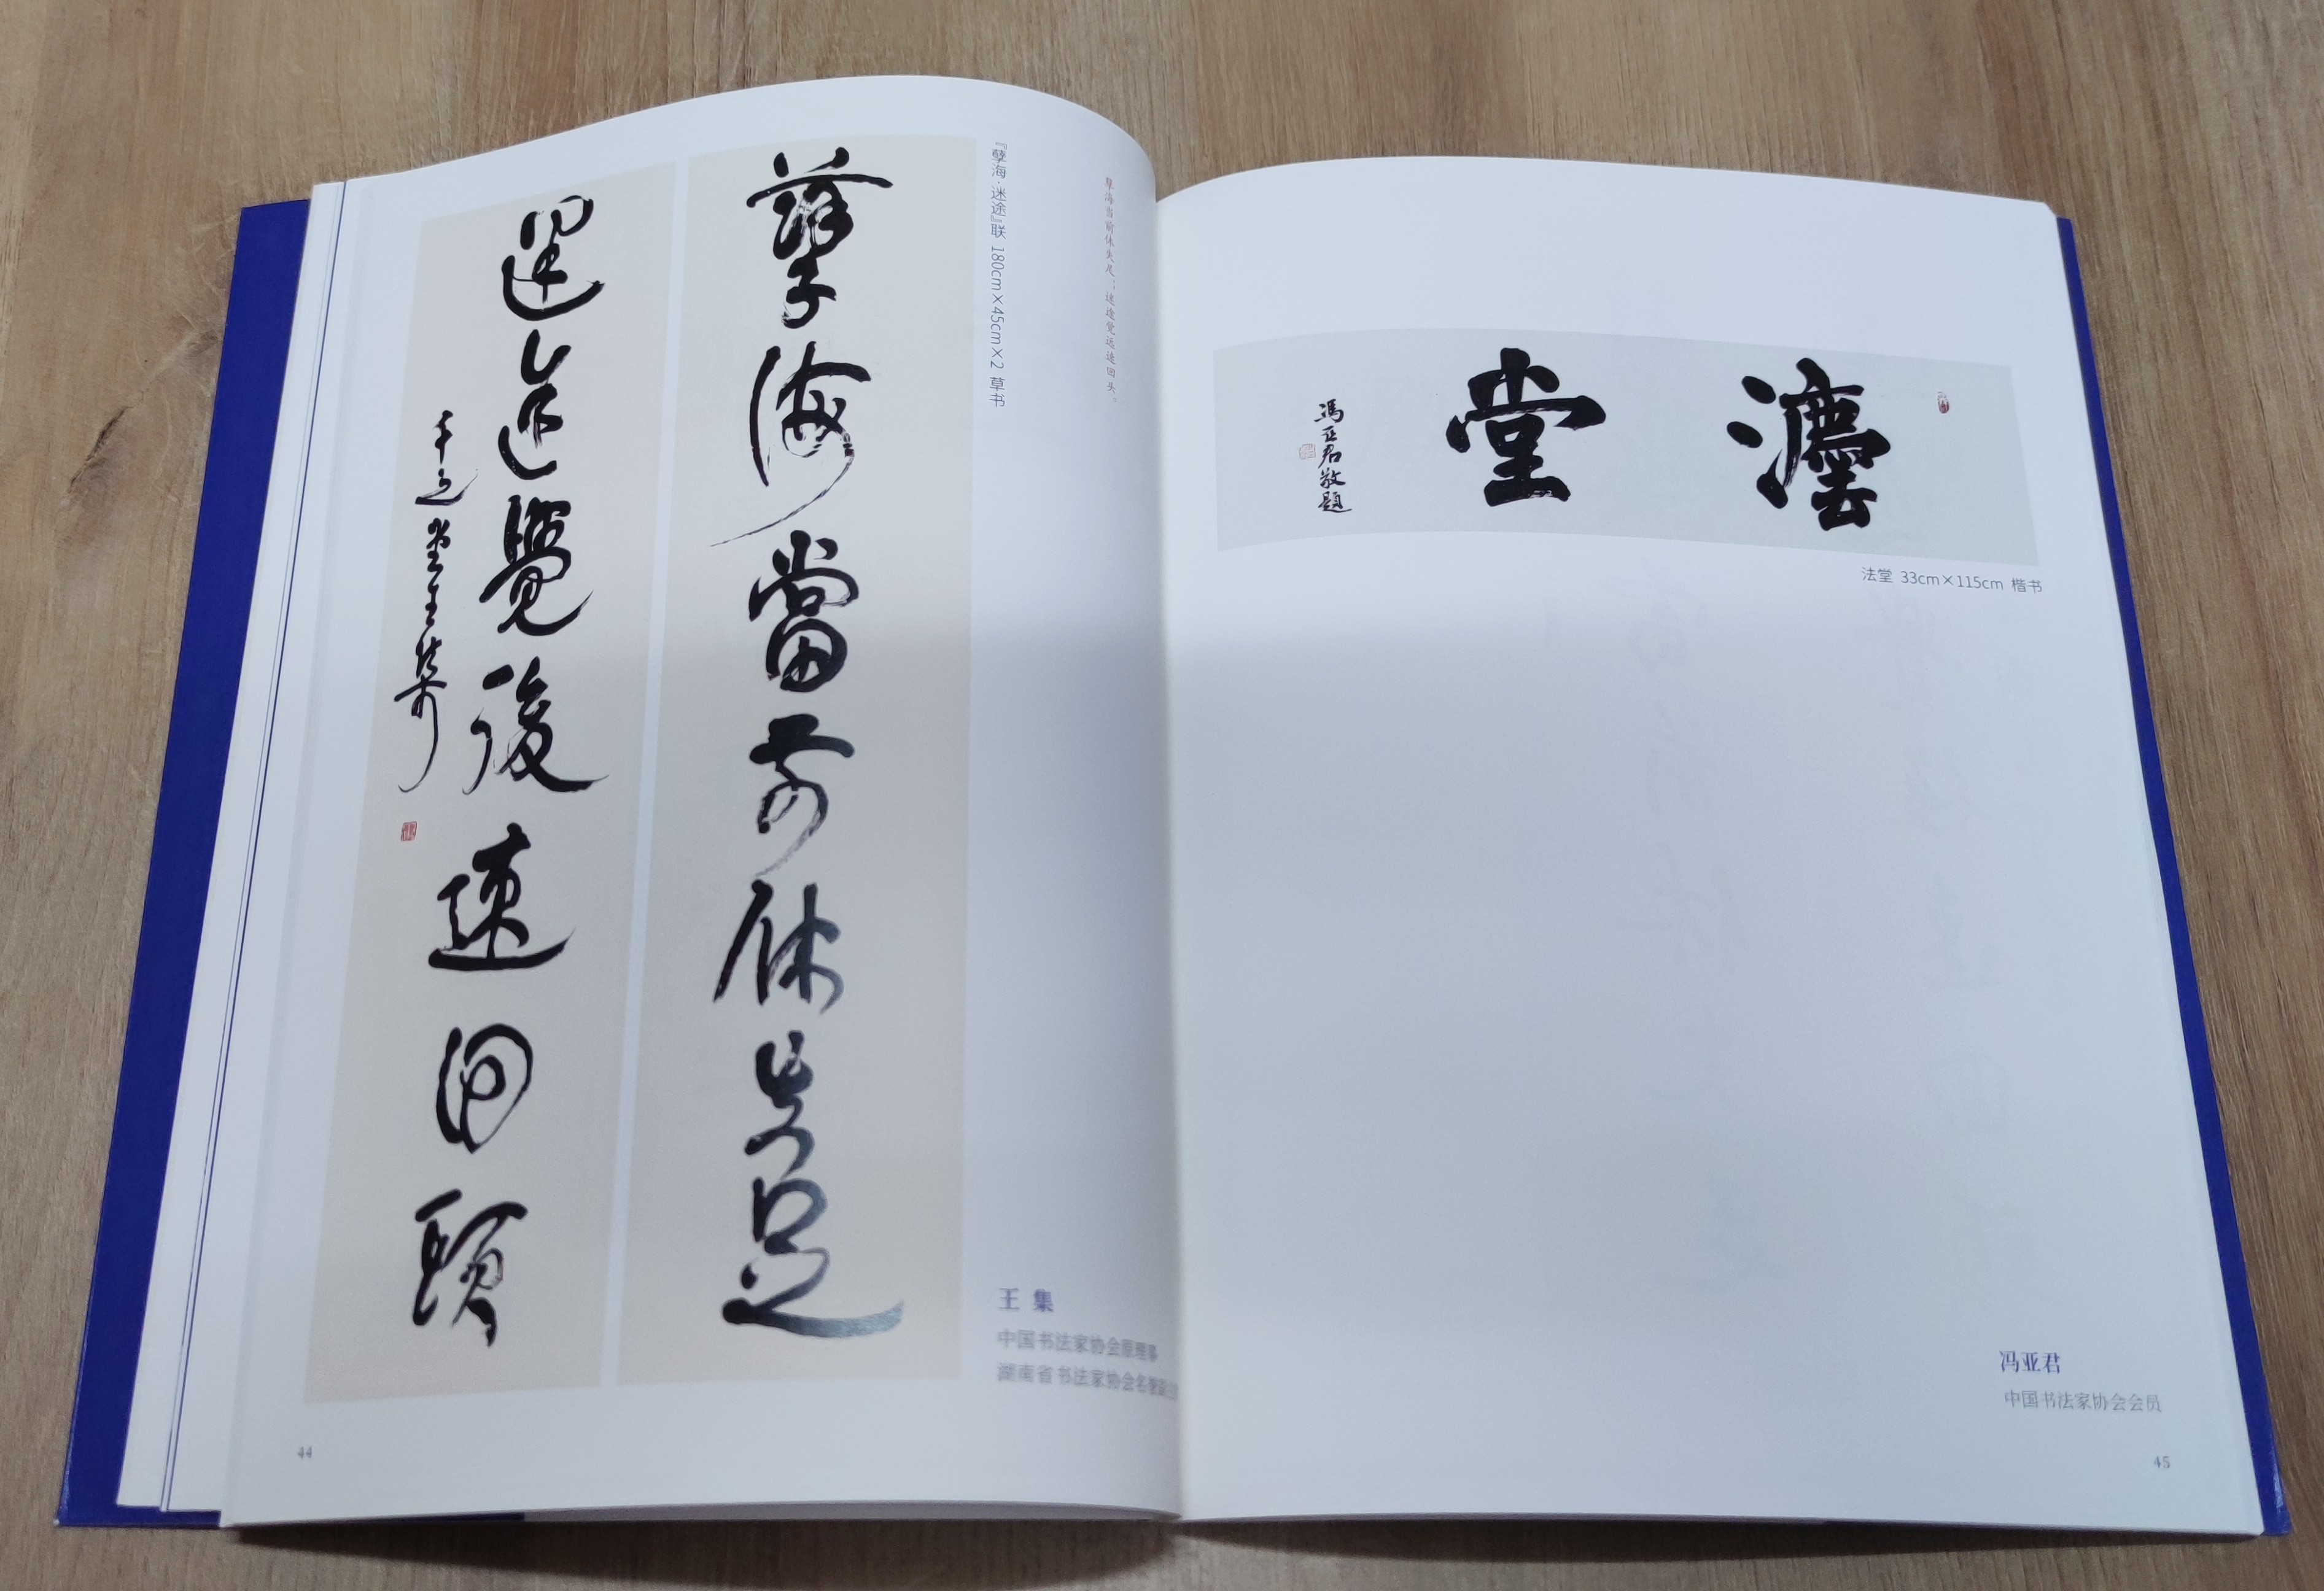 孽海当前休失足；迷途觉后速回头。
『孽海·迷途』联 180cm×45cm×2 草书
孽海當前休失足
迷途覺後速回頭
王集
中国书法家协会原理事
湖南省书法家协会名誉
44
灋堂
馮亞君敬題
法堂 33cm×115cm 楷书
冯亚君
中国书法家协会会员
45